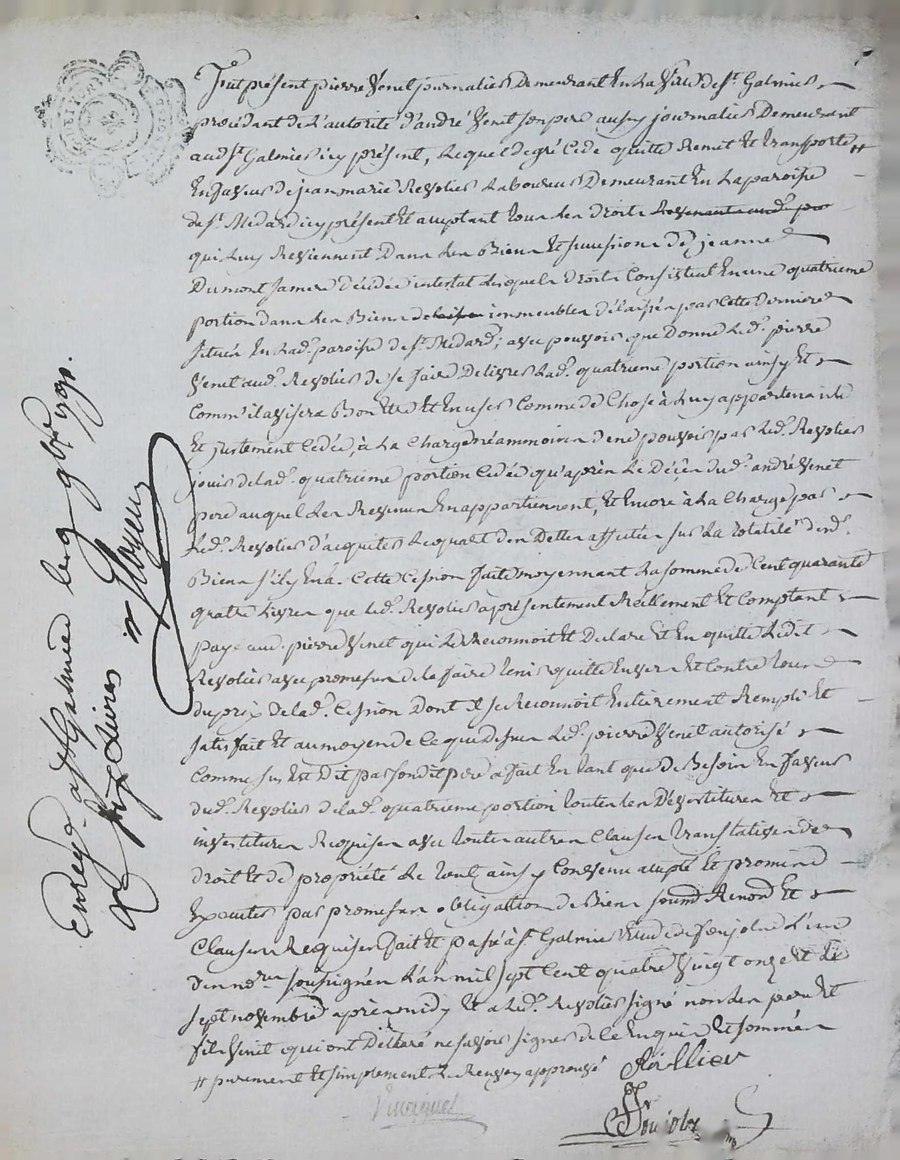 fut présent pierre Venet journalier Demeurant En La Ville de st. Galmier
procédant de L'autorité d'andré Venet son pere aussy journalier Demeurant
aud. st. Galmier icy présent, Lequel de gré Cede quitte Remet Et transporte #
En faveur de jean marie Revolier Laboureur Demeurant En La paroisse
de st. Médard icy présent Et acceptant tous Les Droits
qui Luy Reviennent Dans Les Biens Et succession de jeanne
Dumont sa mere décédée intestat Lesquels Droits Consistent En une quatrieme
portion dans Les Biens immeubles délaissés par Cette Derniere
situés En Lad. paroisse de st. Médard; avec pouvoir que Donne Led. pierre
Venet aud. Revolier de se faire Delivrer Lad. quatrieme portion ainsy Et
Comm'il avisera Bon Etre Et En user Comme de Chose à Luy appartenante
Et justement Cedée, à La Charge néammoins de ne pouvoir par Led. Revolier
jouir de Lad. quatrieme portion Cedée qu'après Le Décès dud. andré Venet
pere auquel Les Revenus En appartiennent, Et Encore à La Charge par
Led. Revolier d'acquiter Le quart des Dettes affectées sur La totalité desd.
Biens s'il y En a. Cette Cession faite moyennant La somme de Cent quarante
quatre Livres que Led. Revolier a présentement Réellement Et Comptant
payé aud. pierre Venet qui Le Reconnoit Et Declare Et En quitte Ledit
Revolier avec promesse de Le faire tenir quitte Envers Et Contre tous
du prix de Lad. Cession Dont il se Reconnoit Entierement Rempli Et
satisfait Et au moyen de Ce que dessus Led. pierre Venet autorisé
Comme sus Est Dit par son dit pere a fait En tant que de Besoin En faveur
dud. Revolier de Lad. quatrieme portion toutes Les Dévestitures Et
investitures Requises avec toutes autres Clauses translatives de
droit Et de propriété Le tout ainsy Convenu accepté Et promis
Executer par promesses obligation de Biens soumd. Renond. Et
Clauses Requises fait Et passé à st. Galmier Etude de Sonjolz L'un
des nores. soussignés L'an mil sept Cent quatre Vingt onze Et Le
sept novembre après midy Et a Led. Revolier signé non Les pere Et
fils Venet qui ont Déclaré ne savoir signer de Ce Enquis Et sommés
# purement Et simplement Le Renvoy approuvé
Sonjolz
Enreg. a st Galmier le 9 9bre 1791.